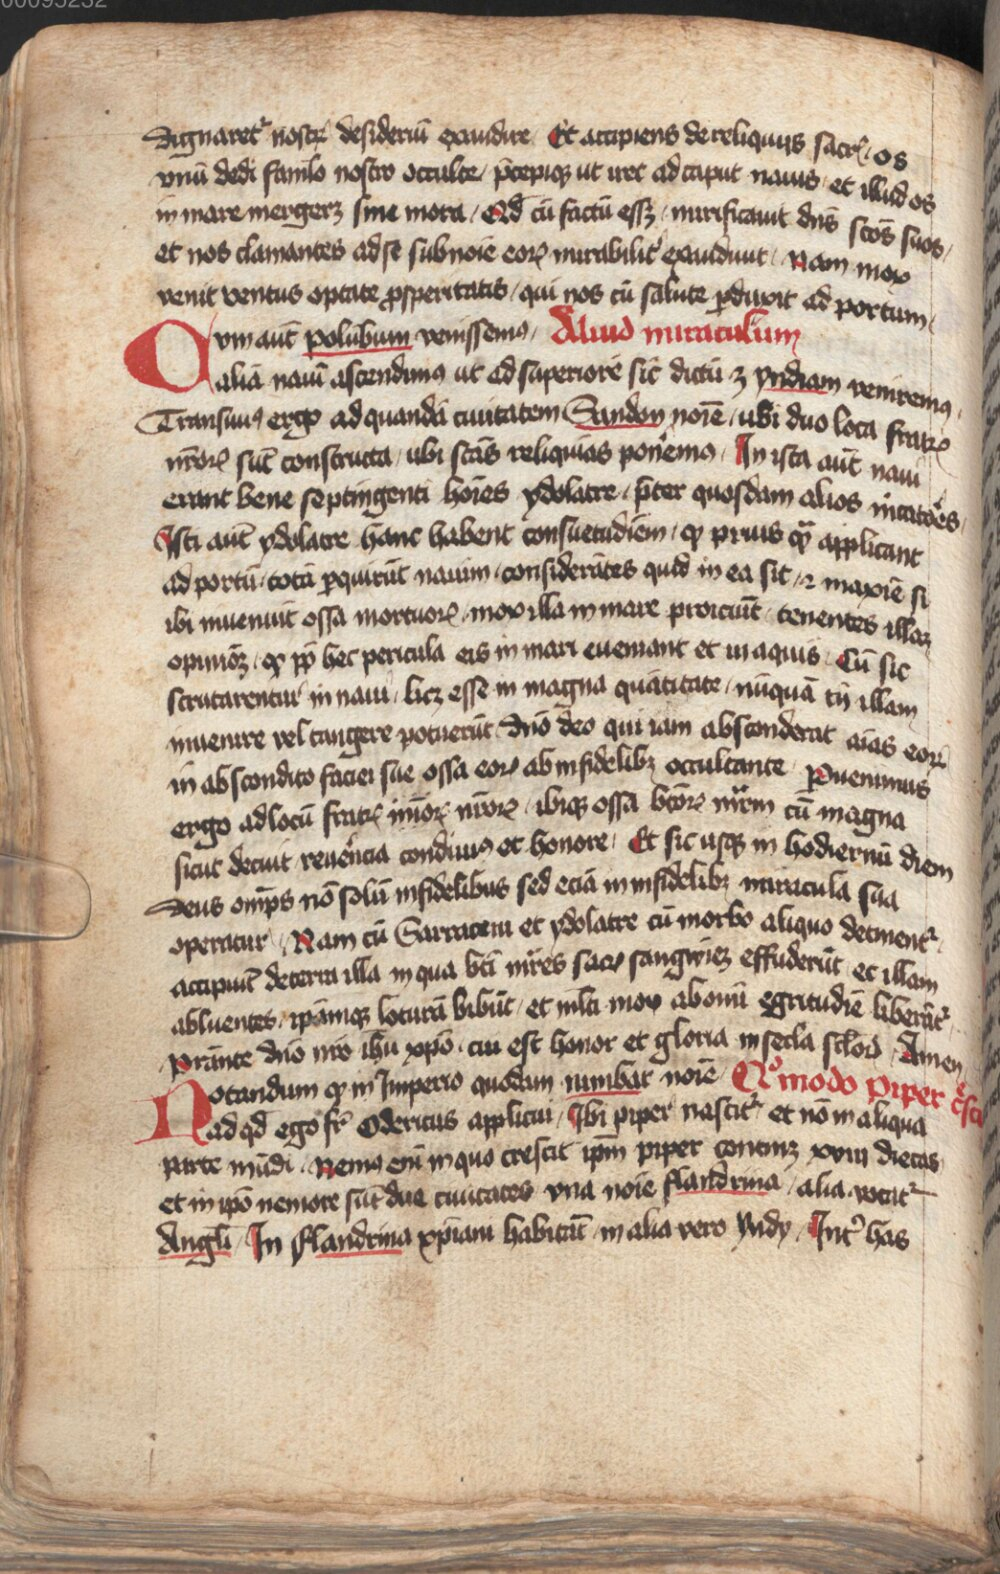 00095232
dignaretʳ nostrꝝ desideriū exaudire Et accipiens de reliquijs sacrꝭ os
vnū dedi famlo nostro occulte / p̄cepiqꝫ ut iret ad caput nauis et illud os
in mare mergerꝫ sine mora / Qd̄ cū factū essꝫ / mirificauit dn̄s sc̄os suos /
et nos clamantes ad se sub noīe eoꝝ mirabilit̉ exaudiuit / Nam mox
venit ventus optate ꝓsperitatis / qui nos cū salute ꝑduxit ad portum /
Cvm aut̄ polumbum venissemꝰ / Aliud miraculum
alia naui ascendimꝰ ut ad superiorē sic dictū ē yndiam veniremꝰ /
Transiuimꝰ ergo ad quandā ciuitatem Sandon noīe / ubi duo loca fratꝝ
mīoꝝ sūt constructa / ubi sc̄as reliquias poneremꝰ / In ista aut̄ naui
erant bene septingenti hoīes ydolatre / p̄ter quosdam alios m̄catōēs /
Isti aut̄ ydolatre hanc habent consuetudīem / qꝫ prius qꝫ applicant
ad portū / totā ꝑquirūt nauim / considerātes quid in ea sit / ⁊ maxīe si
ibi inueniūt ossa mortuoꝝ / mox illa in mare proiciūt / tenentes illaꝫ
opinioꝫ / qꝫ ꝓp hec pericula eis in mari eueniant et in aquis / Cū sic
scrutarentur in naui / licꝫ esse in magna quātitate / nūquā tn̄ illam
inuenire vel tangere potuerūt dn̄o deo qui iam absconderat aīas eoꝝ
in abscondito faciei sue ossa eoꝝ ab infidelibꝫ occultante / ꝑuenimus
ergo ad locū fratꝝ mīoꝝ nr̄oꝝ / ibiqꝫ ossa bt̄oꝝ mr̄m cū magna
sicut decuit / reuerēcia condiuimꝰ et honore / Et sic usqꝫ in hodiernū diem
deus omp̄s nō solū in fidelibus sed eciā in infidelibꝫ miracula sua
operatur / Nam cū Sarraceni et ydolatre cū morbo aliquo detinentʳ /
accipiūt de terra illa in qua bt̄i mr̄es sacꝝ sangwinꝫ effuderūt et illam
abluentes / ip̄amqꝫ loturā bibūt / et ml̄ti mox ab omī egritudīe liberātʳ
prante dn̄o nr̄o ihū xp̄o / cui est honor et gloria in secla sclorꝝ Amen
Notandum qꝫ in Imperio quodam numbar noīe Qͦmodo piper cresct
ad qd̄ ego fr̄ Odericus applicui / Ibi piper nascitʳ et nō in aliqua
parte mūdi / Nemꝰ em̄ in quo crescit ip̄m piper continꝫ xviij dietas
et in ip̄o nemore sūt due ciuitates vna noīe flandrina / alia vocatʳ
Angli / In flandrina xp̄iani habitāt / in alia vero yndy / Int̉ has